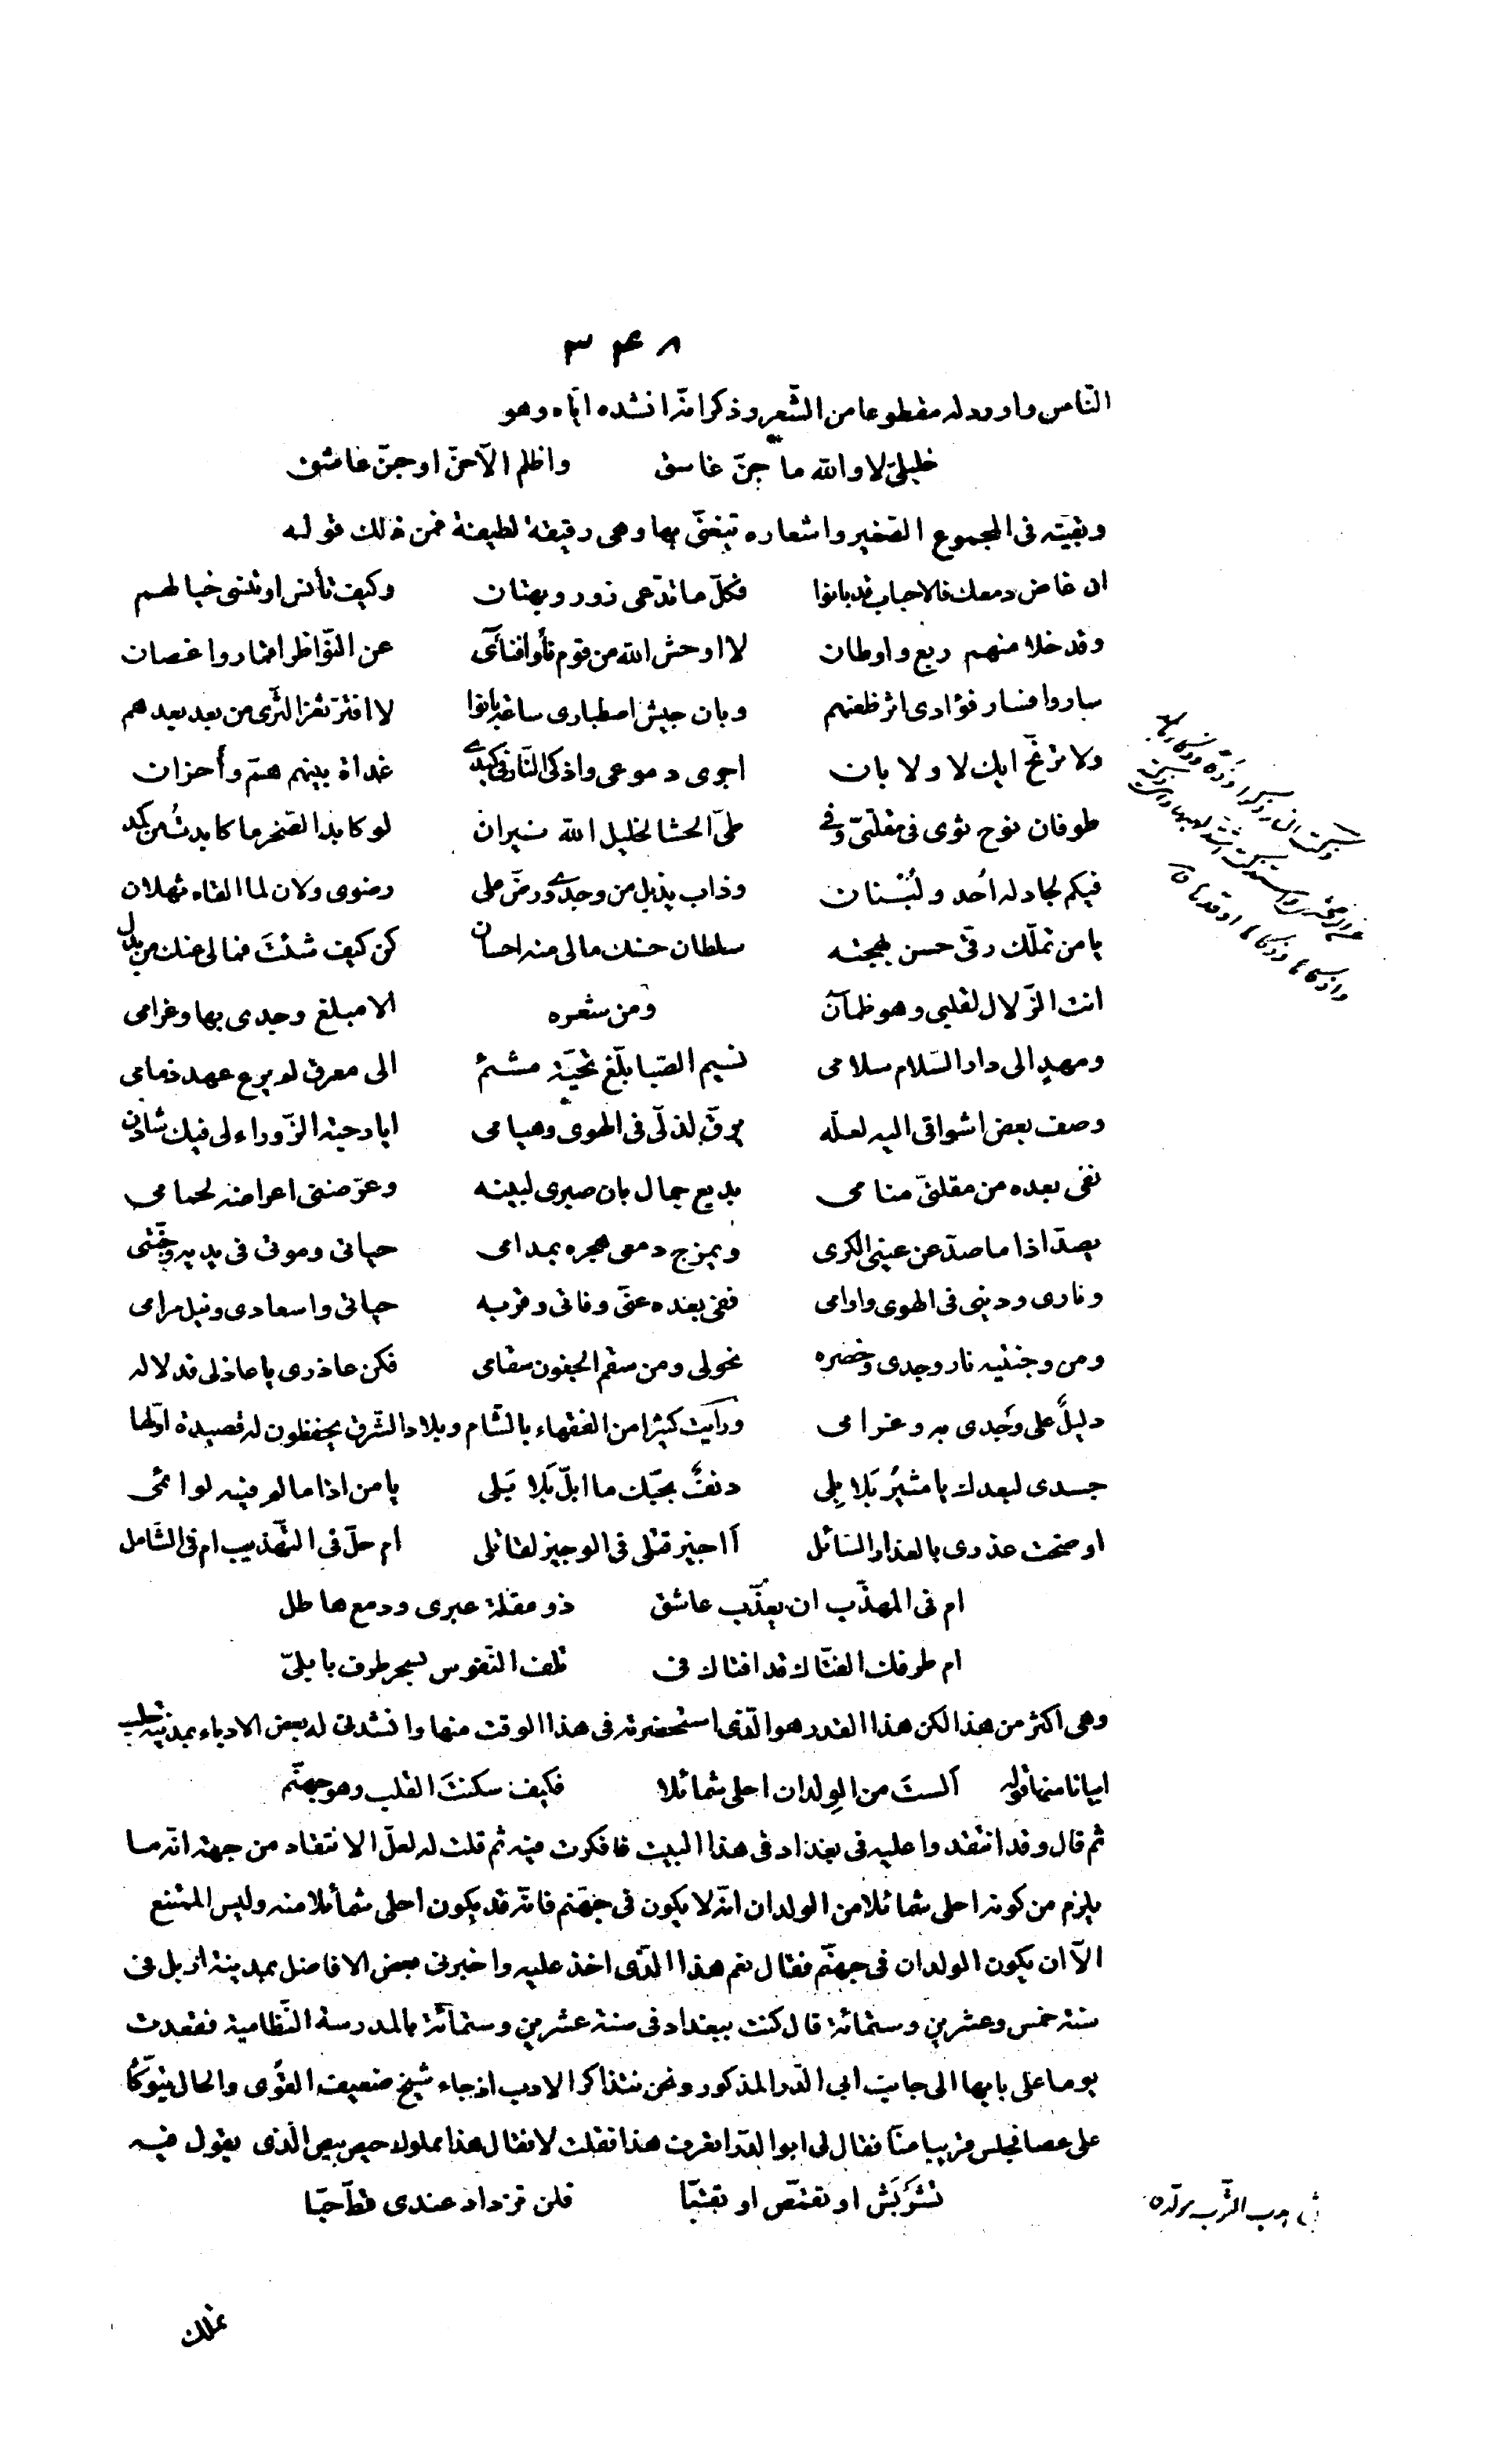 ٣۴٨
النّاس واورد له مقطوعا من الشّعر وذكر انّه انشده ايّاه وهو
خليليّ لا والله ما جنّ غاسق واظلم الّا حنّ او جنّ عاشق
وبقيّته فى المجموع الصّغير واشعاره تيغنّى بها وهى رقيقة لطيفة فمن ذلك قوله
ان غاض دمعك فالاحباب قد بانوا فكلّ ما تدّعى زور وبهتان وكيف تأنس او تنسى خيالهم
وقد خلا منهم ربع واوطان لا اوحش الله من قوم نأوا فنأى عن النّواظر اقمار واغصان
ساروا فسار فؤادى اثر ظعنهم وبان جيش اصطبارى ساعة بانوا لا افترّ ثغر الثّرى من بعد بعدهم
ولا ترنّح ايك لا ولا بان اجرى دموعى واذكى النّار فى كبدى غداة بينهم همّ وأحزان
طوفان نوح ثوى فى مقلتىّ وفى طىّ الحشا لخليل الله نيران لو كابد الصّخر ما كابدتُ من كمد
فيكم لجاد له اُحد ولُبْنان وذاب يذبل من وجدى ورضّ على رضوى ولان لما القاه ثهلان
يا من تملّك رقّى حسن بهجته سلطان حسنك مالى منه احسان كن كيف شئتَ فمالى عنك من بدل
انت الزّلال لقلبى وهو ظمآن ومن شعره الا مبلغ وجدى بها وغرامى
ومهدٍ الى دار السّلام سلامى نسيم الصّبا بلّغ تحيّة مشئم الى معرق لم يرع عهد ذمامى
وصف بعض اشواقى اليه لعلّه يرقّ لذلّى فى الهوى وهيامى ايا رحبة الزّوراء لى فيك شادن
نفى بعده من مقلتىّ منامى بديع جمال بان صبرى لبينه وعرّضنى اعراضه لحمامى
يصدّ اذا ما صدّ عن عينى الكرى ويمزج دمعى هجره بمدامى حياتى وموتى فى يديه وجنّتى
ونارى ودينى فى الهوى واوامى ففى بعده عنّى وفاتى وقربه حياتى واسعادى ونيل مرامى
ومن وجنتيه نار وجدى وخصره نحولى ومن سقم الجفون سقامى فكن عاذرى يا عاذلى فدلاله
دليلٌ على وَجْدى به وغرامى ورأيت كثيرا من الفقهاء بالشّام وبلاد الشّرق يحفظون له قصيدة اوّلها
جسدى لبعدك يا مثيرُ بَلابِلِى دنفٌ بحبّك ما ابلّ بَلا بَلى يا من اذا ما لام فيه لوائمى
اوضحت عذرى بالعذار السّائل أاجيز قتلى فى الوجيز لقاتلى ام حلّ فى التّهذيب ام فى الشّامل
ام فى المهذّب ان يعذّب عاشق ذو مقلة عبرى ودمع هاطل
ام طرفك الفتّاك قد افتاك فى تلف النّفوس بسحر طرف بابلىّ
وهى اكثر من هذا لكن هذا القدر هو الّذى استحضرته فى هذا الوقت منها وانشدنى له بعض الادباء بمدينة حلب
ابياتا منها قوله ألستَ من الوِلدان احلى شمائلا فكيف سكنتَ القلب وهو جهنّم
ثم قال وقد انتقدوا عليه فى بغداد فى هذا البيت فافكرت فيه ثم قلت له لعلّ الانتقاد من جهة انّه ما
يلزم من كونه احلى شمائلا من الولدان انّه لا يكون فى جهنم فانّه قد يكون احلى شمائلا منه وليس الممتنع
الّا ان يكون الولدان فى جهنّم فقال نعم هذا الّذى اخذ عليه واخبرنى بعض الافاضل بمدينة اربل فى
سنة خمس وعشرين وستمائة قال كنت ببغداد فى سنة عشرين وستمائة بالمدرسة النّظامية فقعدت
يوما على بابها الى جانب ابى الدّر المذكور ونحن نتذاكر الادب اذ جاء شيخ ضعيف القُوى والحال يتوكّأ
على عصا فجلس قريبا منّا فقال لى ابو الدّر اتعرف هذا فقلت لا فقال هذا مملوك حيص بيص الّذى يقول فيه
تشَرْبَشْ او تقمّص او تقبّا فلن تزداد عندى قطّ حبّا
تملك